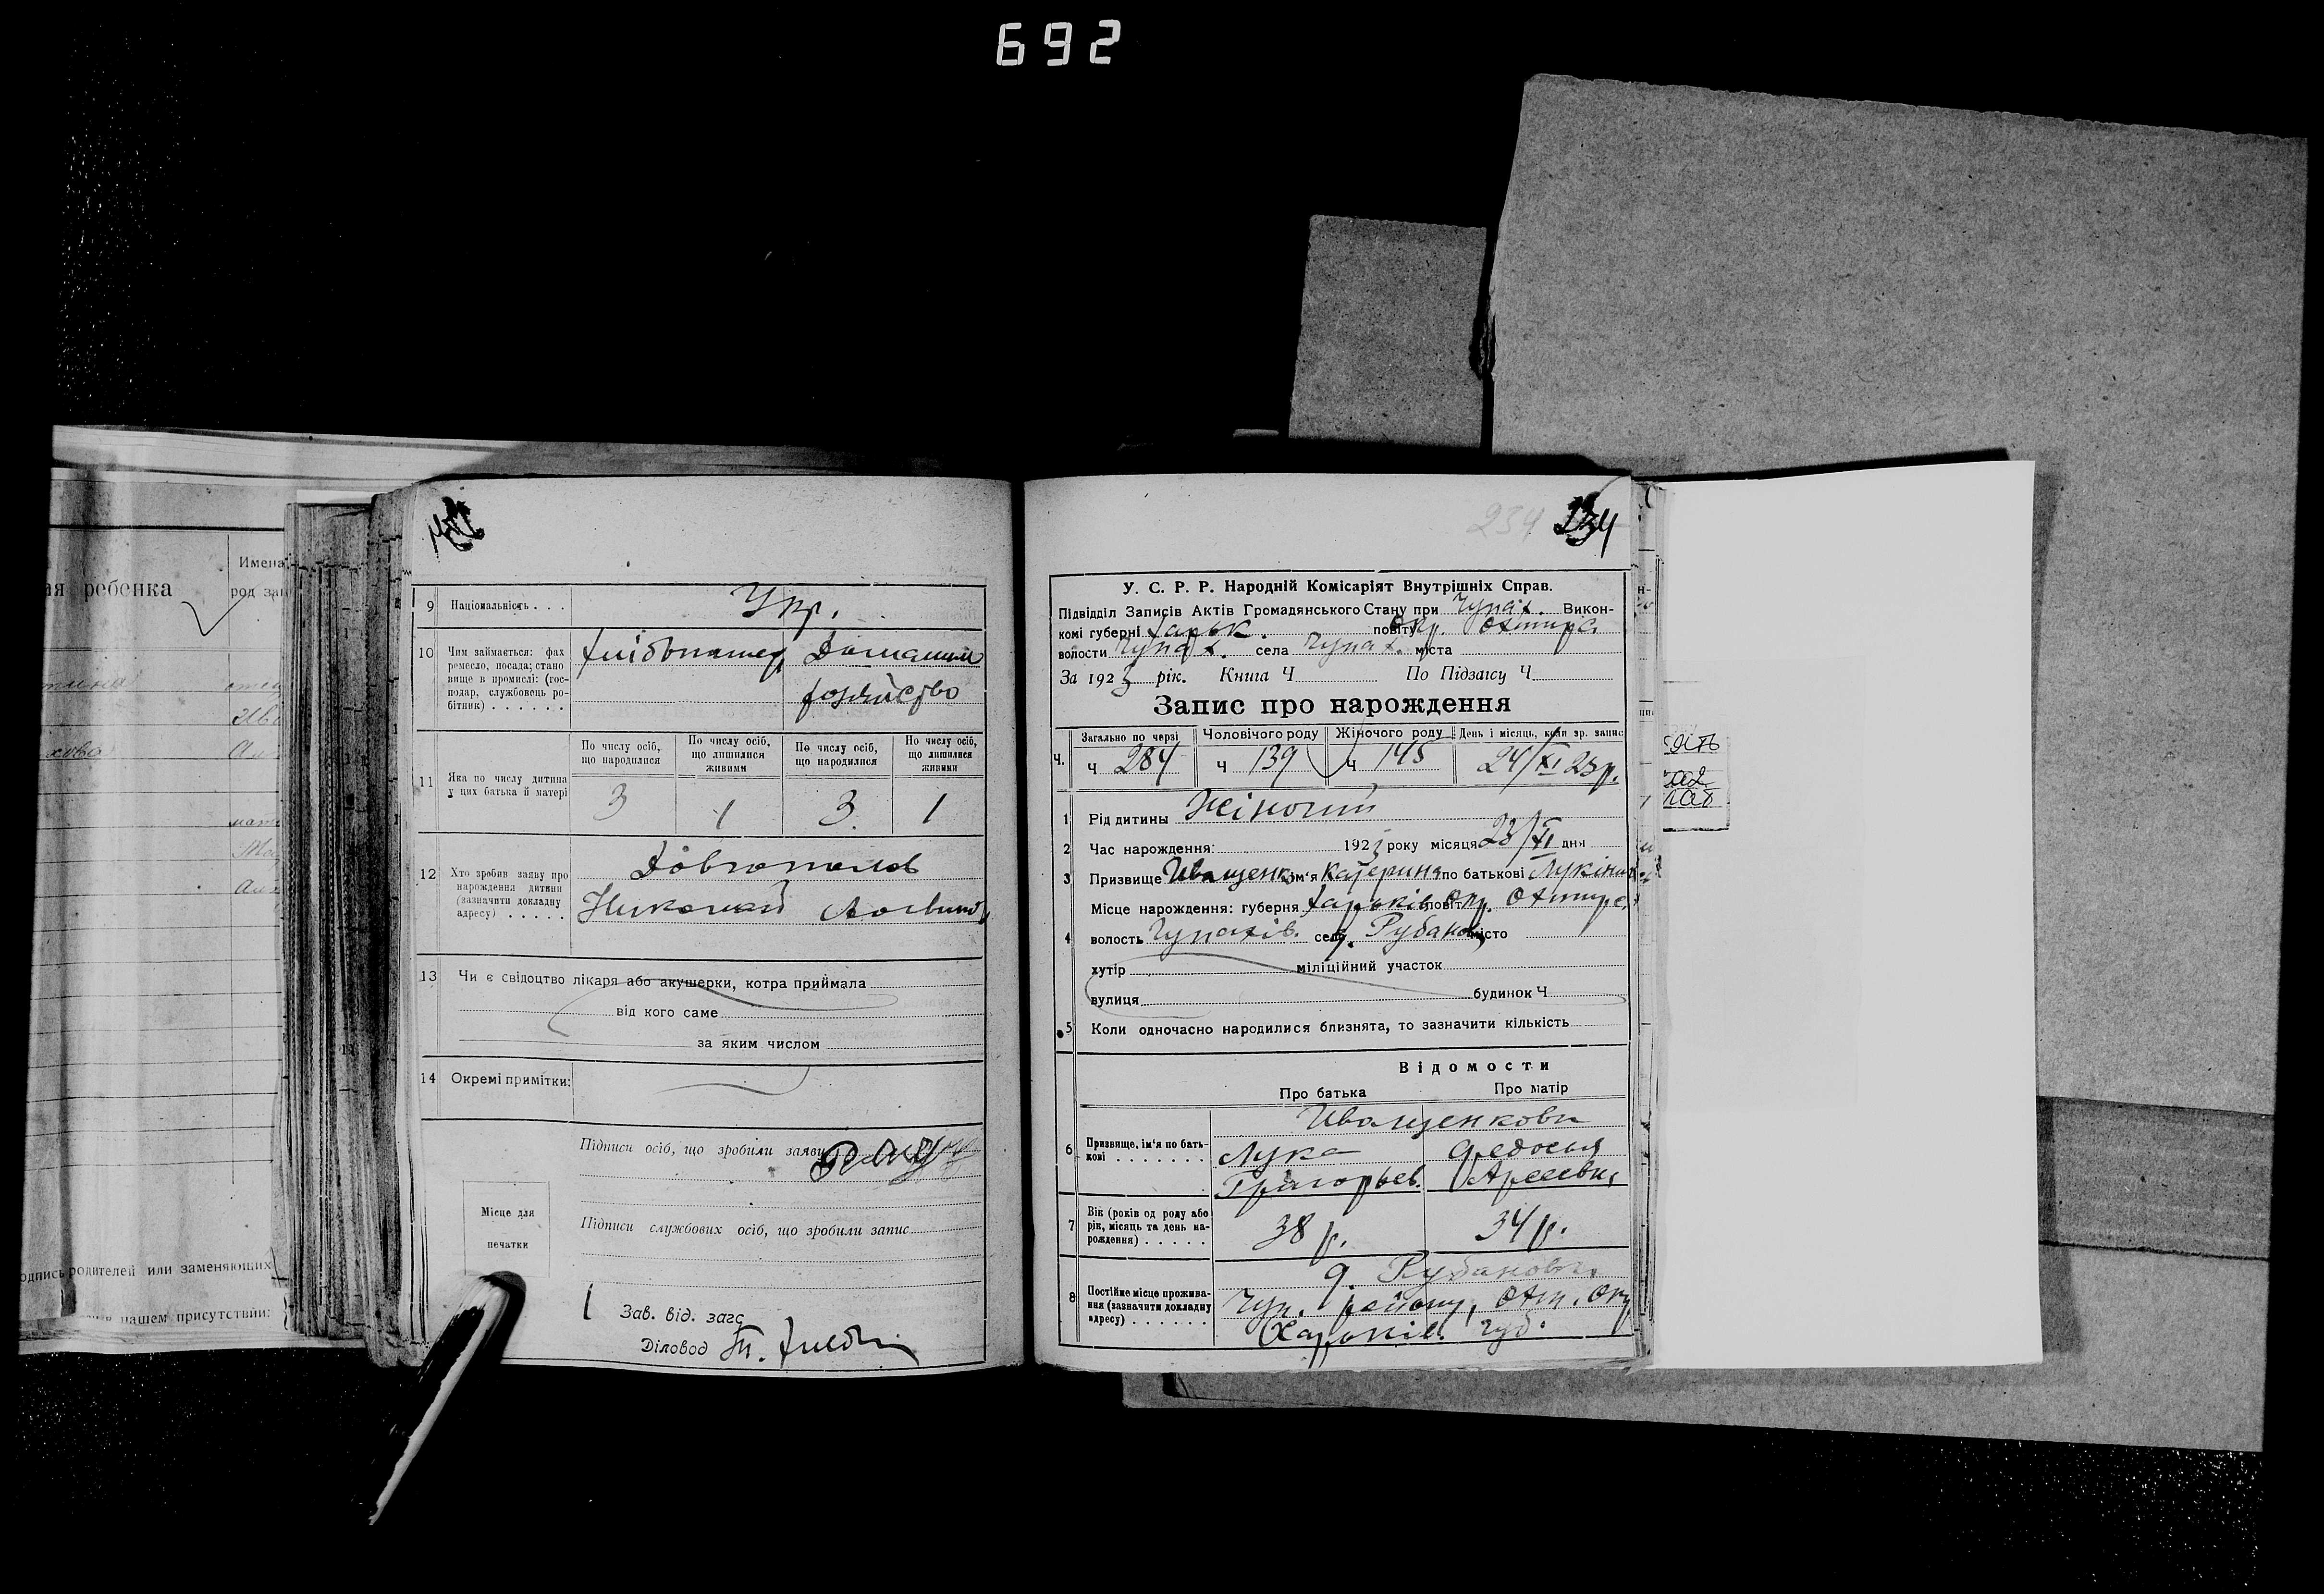 692
ребенка
Имена
9 Національність . . .
Укр.
10 Чим займається: фах
ремесло, посада; стано
вище в промислі: (гос-
подар, службовець ро-
бітник) . . . . . .
Хлібопашец Домашнє
хозяйство
11 Яка по числу дитина
у цих батька й матері
По числу осіб,
що народилися
По числу осіб,
що лишилися
живими
По числу осіб,
що народилися
По числу осіб,
що лишилися
живими
3 1 3 1
12 Хто зробив заяву про
нарождення дитини
(зазначити докладну
адресу) . . . . .
Довгополов
Николай
13 Чи є свідоцтво лікаря або акушерки, котра приймала
від кого саме
за яким числом
14 Окремі примітки:
Підписи осіб, що зробили заяву
Місце для
печатки
Підписи службових осіб, що зробили запис
Зав. від. загс
Діловод
родителей или заменяющих
нашем присутствии:
234 234
У. С. Р. Р. Народній Комісаріят Внутрішніх Справ.
Підвідділ Записів Актів Громадянського Стану при Чупах. Викон-
комі губерні Харьк. повіту Окр. Охтирс.
волости Чупах. села Чупах. міста
За 1923 рік. Книга Ч По Підзагсу Ч
Запис про нарождення
Ч. Загально по черзі Чоловічого роду Жіночого роду День і місяць, коли зр. запис
Ч 284 Ч 139 Ч 145 24/XI 23р.
1 Рід дитины Жіночий
2 Час нарождення: 1923 року місяця 23/XI дня
3 Призвище Иващенко ім'я Катерина по батькові
Місце нарождення: губерня Харьків. повіт Окр. Охтирс.
4 волость Чупахів. село Рубанов. місто
хутір міліційний участок
вулиця будинок Ч
5 Коли одночасно народилися близнята, то зазначити кількість
Відомости
Про батька Про матір
6 Призвище, ім'я по бать-
кові . . . . . . .
Иващенкови
Лука Федосия
Григорьев.
7 Вік (років од роду або
рік, місяць та день на-
рождення) . . . . .
38 р. 34 р.
8 Постійне місце прожива-
ння (зазначити докладну
адресу) . . . . . . .
Чуп. району, Охт. Окр,
Харьків. губ.